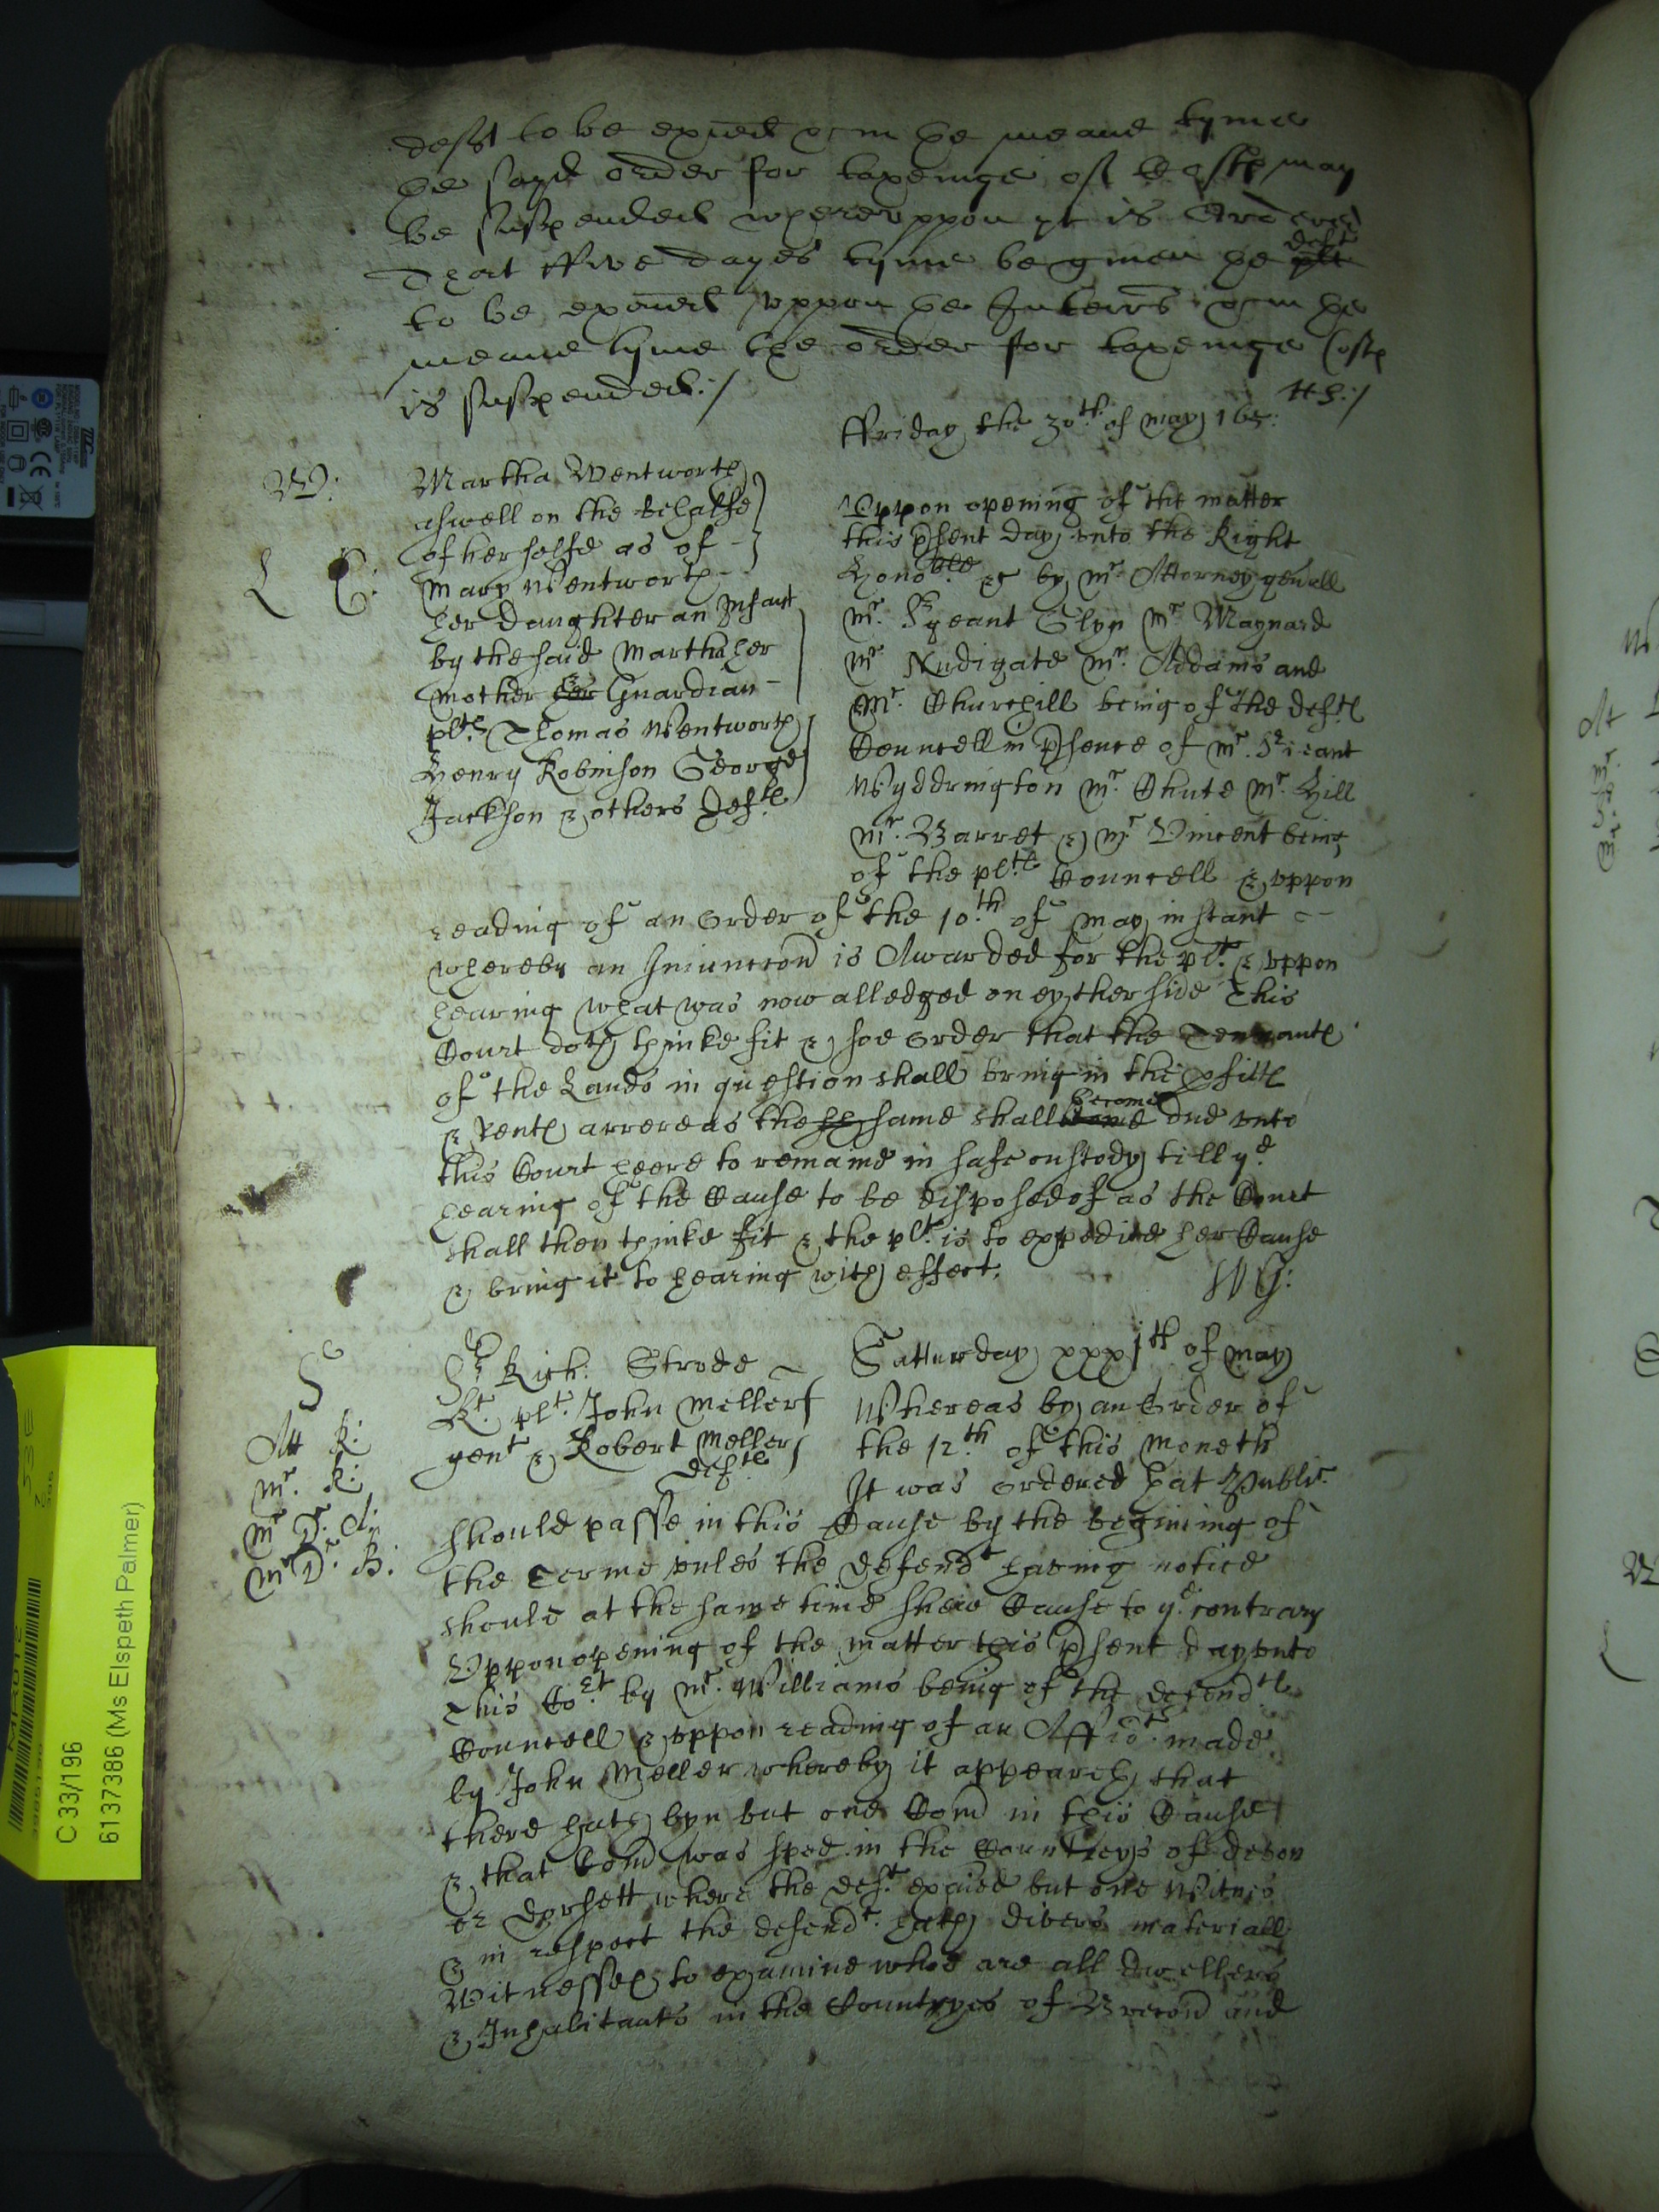 deft to be exied & in ye meane tyme
ye sayd order for taxeinge of Costs may
be suspended whereuppon yt is Ordered
That ffive dayes tyme be given ye plt deft
to be exaied uppon ye Interrs & in ye
meane tyme the order for taxeinge Costs
is suspended:/
HH:/
ffriday the 30th of may 165:
W:
L C:
Martha Wentworth
aswell on the behalfe
of her selfe as of
Mary Wentworth
her daughter an Infant
by the said Martha her
mother her Guardian
plts Thomas Wentworth
Henry Robinson George
Jackson & others Defts
Uppon opening of the matter
this psent day unto the Right
Honoble &c by mr Attorney genall
mr Sr geant Glyn mr Maynard
mr Nudigate mr Addams and
Mr Churchill being of the defts
Councell in psence of mr Srieant
Wyddrington mr Chute mr Hill
mr Barret & mr Vincent being
of the plts Councell & uppon
reading of an order of the 10th of may instant
whereby an Iniunccon is Awarded for the plt & uppon
hearing what was now alledged on eyther side This
Court doth thinke fit & soe order that the Tennants
of the Lands in question shall bring in the pfitts
& Rents arrere as the same shall become due unto
this Court heere to remaine in safe custody till ye
hearing of the Cause to be disposed of as the Court
shall then thinke fit & the plt is to expedite her Cause
& bring it to hearing with effect.
WG:
S
Att R:
mr R:
mr Dr A:
mr Dr B:
Sr Rich: Strode
Kt plt John Meller
gent & Robert Meller
defts
Satturday xxxjth of may
Whereas by an Order of
the 12th of this moneth
It was ordered that Public
should passe in this Cause by the begining of
the terme unles the defendt having notice
should at the same time shew Cause to ye contrary
Uppon opening of the matter this psent day unto
This Cort by mr Williams being of the defendts
Councell & uppon reading of an Affidt made
by John Meller whereby it appeareth that
there hath byn but one Com in this Cause
& that Com was sped in the Countreys of devon
or Dorsett where the deft exaied but one Witnes
& in respect the defendt hath divers materiall
Witnesses to examine whoe are all dwellers
& Inhabitants in the Countryes of Brecon and
C 33/196
6137386 (Ms Elspeth Palmer)